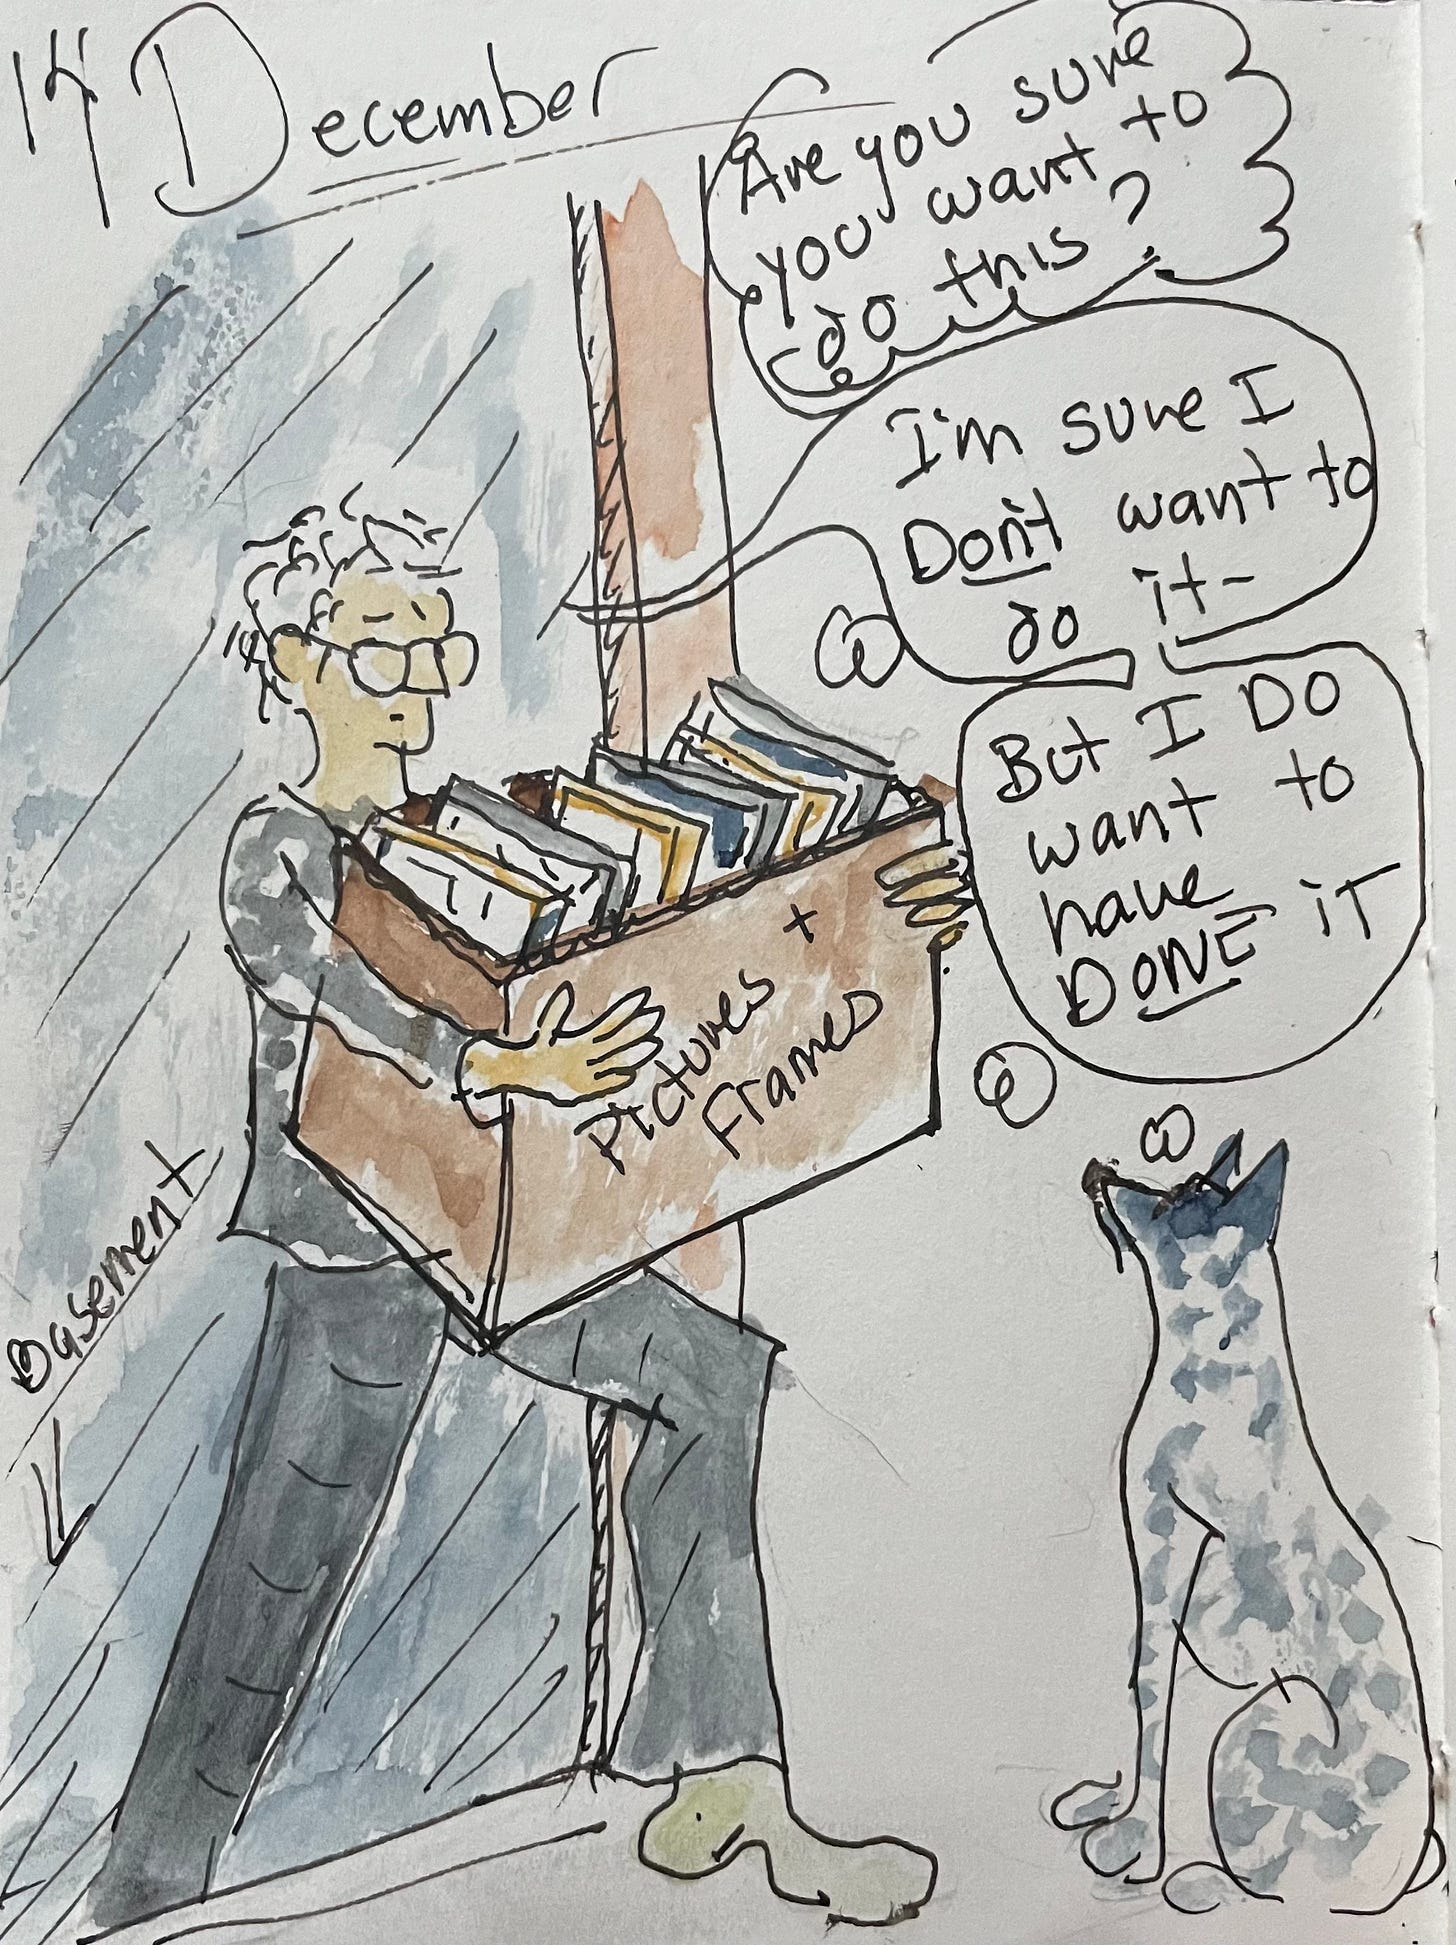 14 December
Are you sure
you want to
do this?
I'm sure I
Don't want to
do it-
But I DO
want to
have
DONE it
Pictures +
Frames
Basement